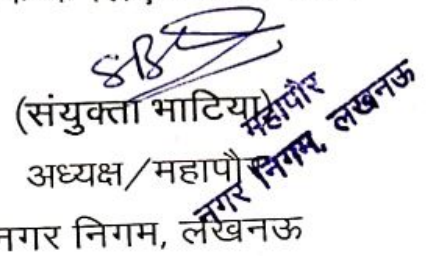 (संयुक्ता भाटिया)
अध्यक्ष/महापौर
नगर निगम, लखनऊ
महापौर
नगर निगम, लखनऊ